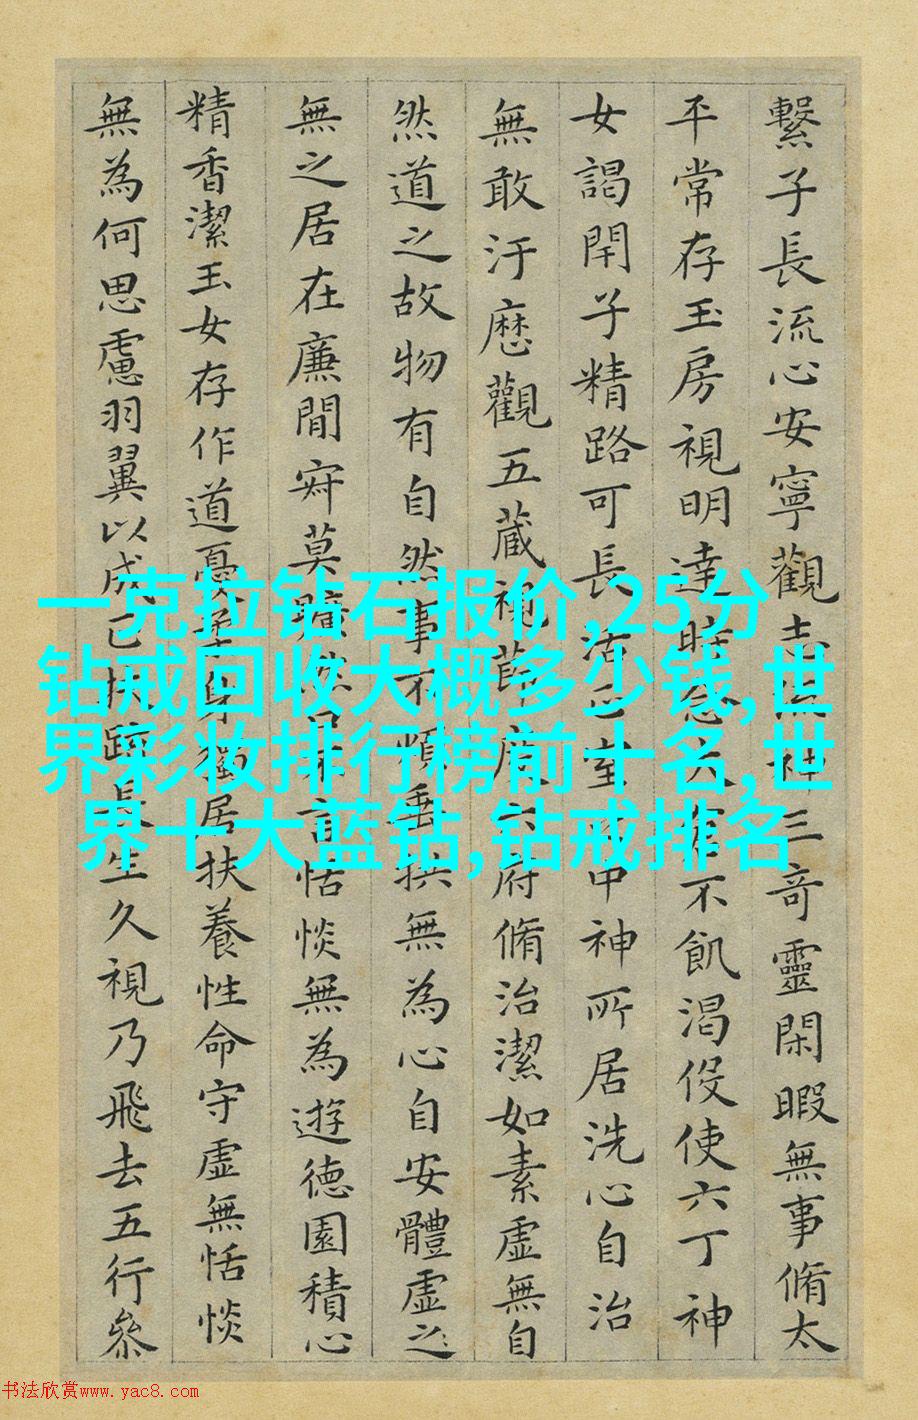 繋子長流心安寧觀志流神三奇靈閑暇無事脩太
平常存玉房視明達時念大倉不飢渴役使六丁神
女謁閇子精路可長活正室之中神所居洗心自治
無敢汙歷觀五藏視節度六府脩治潔如素虛無自
然道之故物有自然事不煩垂拱無為心自安體虛之
無之居在廉間寂莫曠然口不言恬惔無為遊德園積心
精香潔玉女存作道憂柔身獨居扶養性命守虛無恬惔
無為何思慮羽翼以成正扶疏長生久視乃飛去五行參
一克拉钻石报价,25分
钻戒回收大概多少钱,世
界彩妆排行榜前十名,世
界十大蓝钻,钻戒排名
书法欣赏www.yac8.com